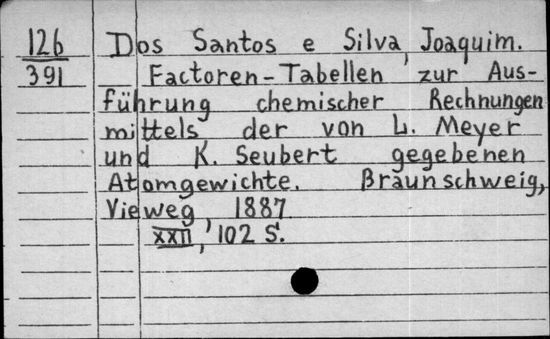 126 Dos Santos e Silva, Joaquim.
391 Factoren-Tabellen zur Aus-
führung chemischer Rechnungen
mittels der von L. Meyer
und K. Seubert gegebenen
Atomgewichte. Braunschweig,
Vieweg, 1887
XXII, 102 S.